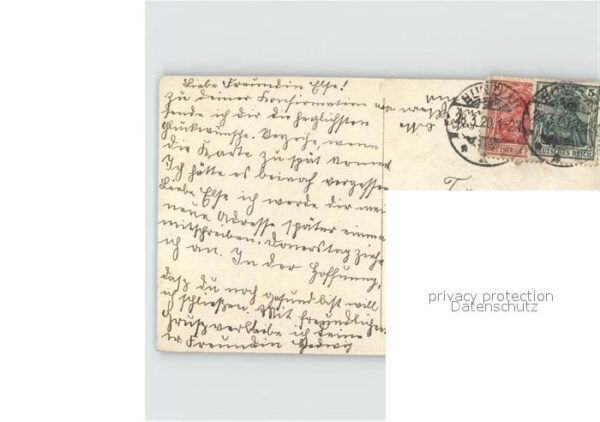 Liebe Freundin Else!
Zu deiner Konfirmation
sende ich dir die herzlichsten
Glückwünsche. Verzeihe, wenn
die Karte zu spät kommt
Ich hätte es beinah vergessen
Liebe Else ich werde dir mei
neue Adresse später einma
mitschreiben. Donerstag ziehe
ich an. In der Hoffnung,
daß du noch gesund bist will
ich schließen. Mit freundlichen
Gruß verbleibe ich deine
Freundin Hedwig
5
DEUTSCHES REICH
privacy protection
Datenschutz